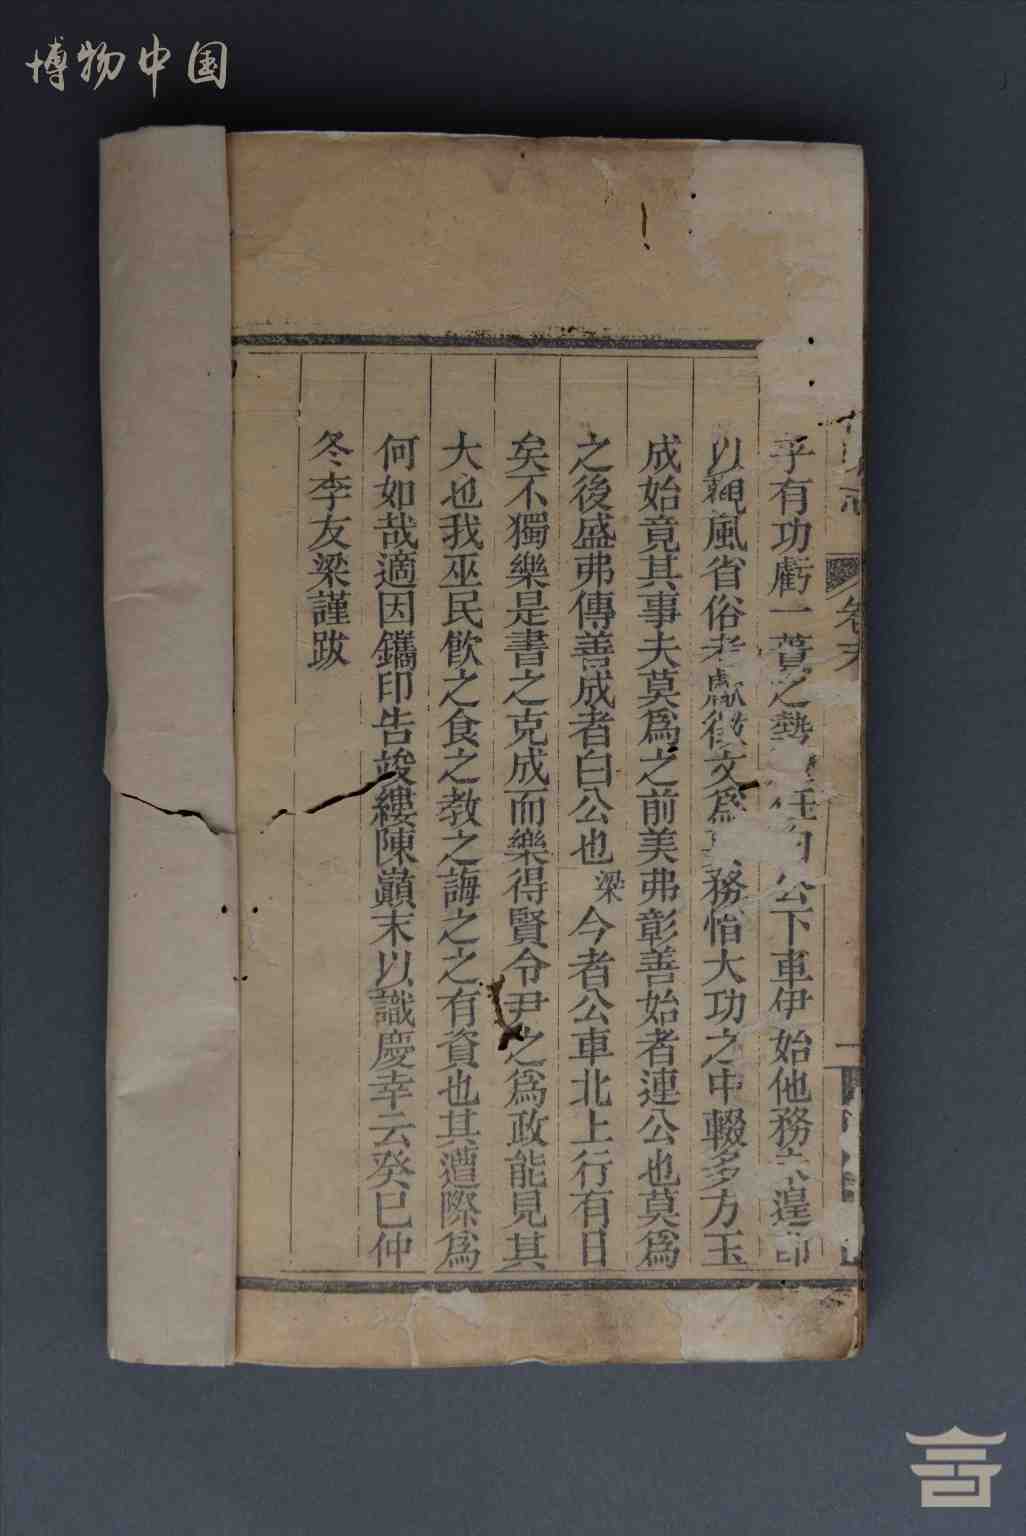 博物中国
乎有功虧一簣之勢公下車伊始他務未遑即
以觀風省俗考獻徵文爲務恰大功之中輟多方玉
成始竟其事夫莫爲之前美弗彰善始者連公也莫爲
之後盛弗傳善成者白公也梁今者公車北上行有日
矣不獨樂是書之克成而樂得賢令尹之爲政能見其
大也我巫民飲之食之教之誨之之有資也其遭際爲
何如哉適因鐫印告竣縷陳巔末以識慶幸云癸巳仲
冬李友梁謹跋
志
卷末